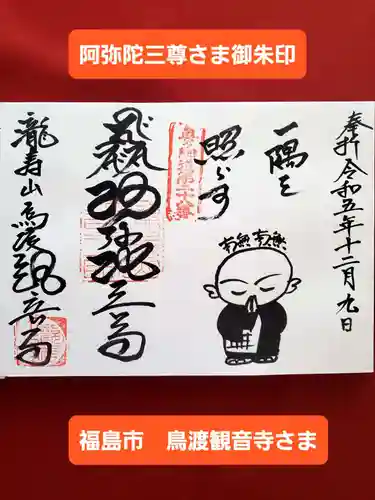 阿弥陀三尊さま御朱印
奉拝 令和五年十二月九日
一隅を
照らす
南無 南無
阿弥陀三尊
龍寿山 鳥渡観音寺
福島市　鳥渡観音寺さま